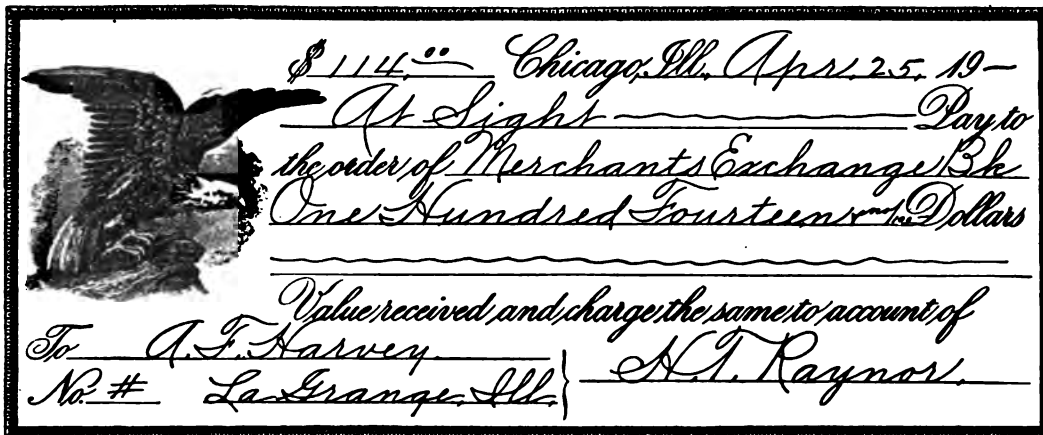 $ 114.00 Chicago, Ill. Apr. 25, 19—
At Sight Pay to
the order of Merchants Exchange Bk
One Hundred Fourteen and no/100 Dollars
Value received and charge the same to account of
To A. F. Harvey
No. # La Grange, Ill. H. T. Raynor.